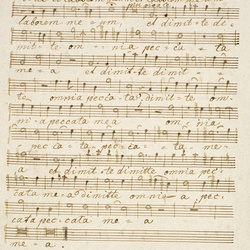 laborem me um, et dimit-te di-
mit-te om - nia pec-ca - ta
me - a et dimit-te dimit-
te omnia pec-ca-ta, dimit-te om-
ni-a peccata mea omni-
a pecca-ta-pecca-ta-me-
a et dimit-te dimitte omnia pec
cata mea dimitte omnia pec
cata pec-cata me - a
me - a.